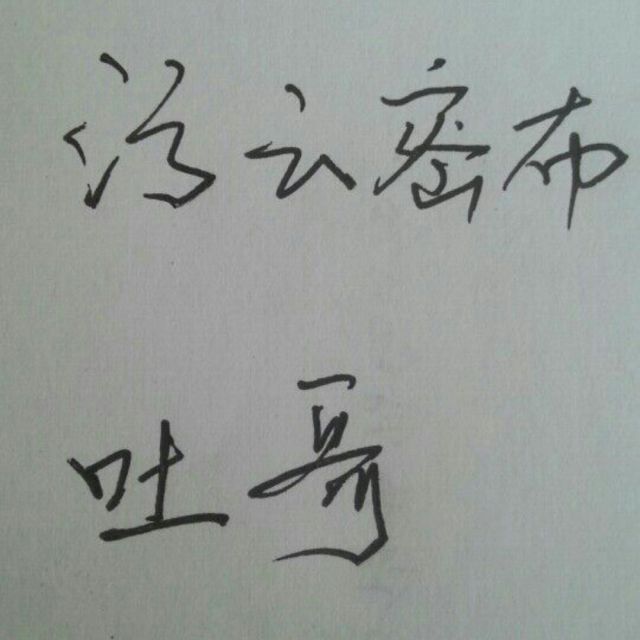 污云密布
吐哥